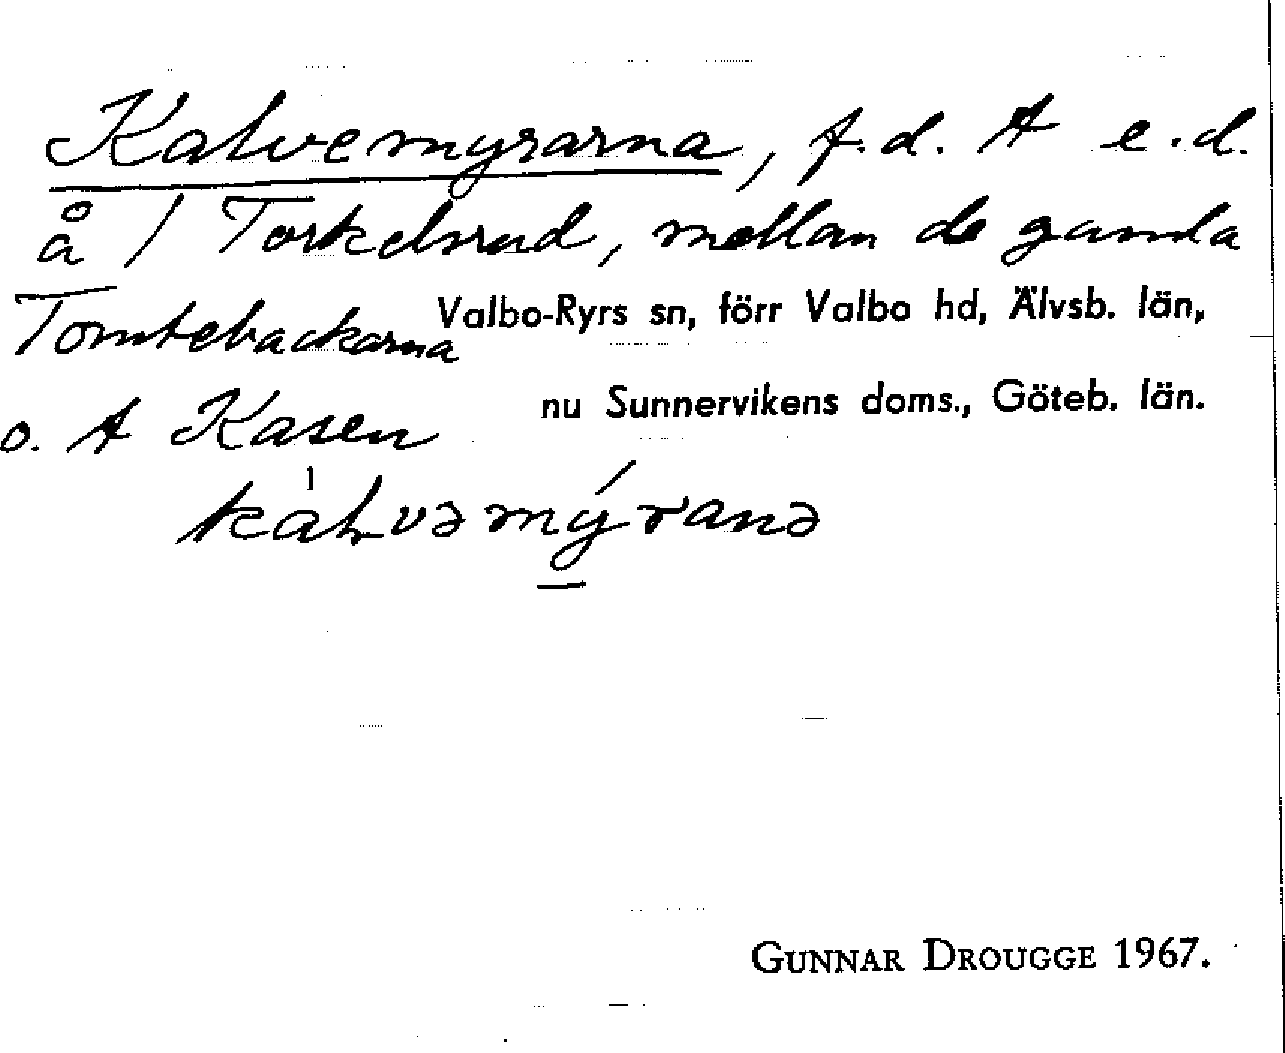 Kalvemyrarna, f.d. A e.d.
å / Torkelsrud, mellan de gamla
Tomtebackarna
Valbo-Ryrs sn, förr Valbo hd, Älvsb. län,
nu Sunnervikens doms., Göteb. län.
o. A Kasen
kàlvəmýranə
GUNNAR DROUGGE 1967.